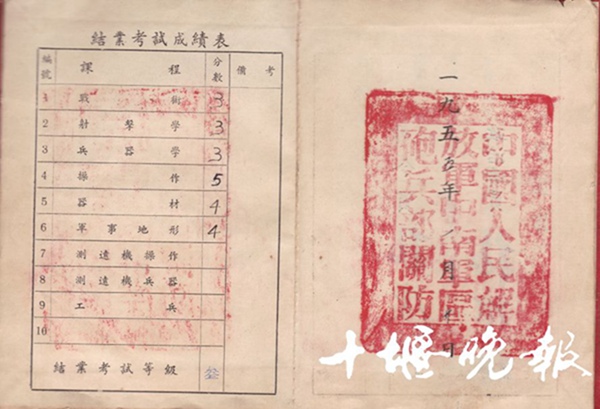 結業考試成績表
編號 課程 分數 備考
1 戰術 3
2 射擊學 3
3 兵器學 3
4 操作 5
5 器材 4
6 軍事地形 4
7 測遠機操作
8 測遠機兵器
9 工兵
10
結業考試等級 叁
一九五五年 月 日
中國人民解
放軍中南軍區
砲兵部關防
十堰晚报